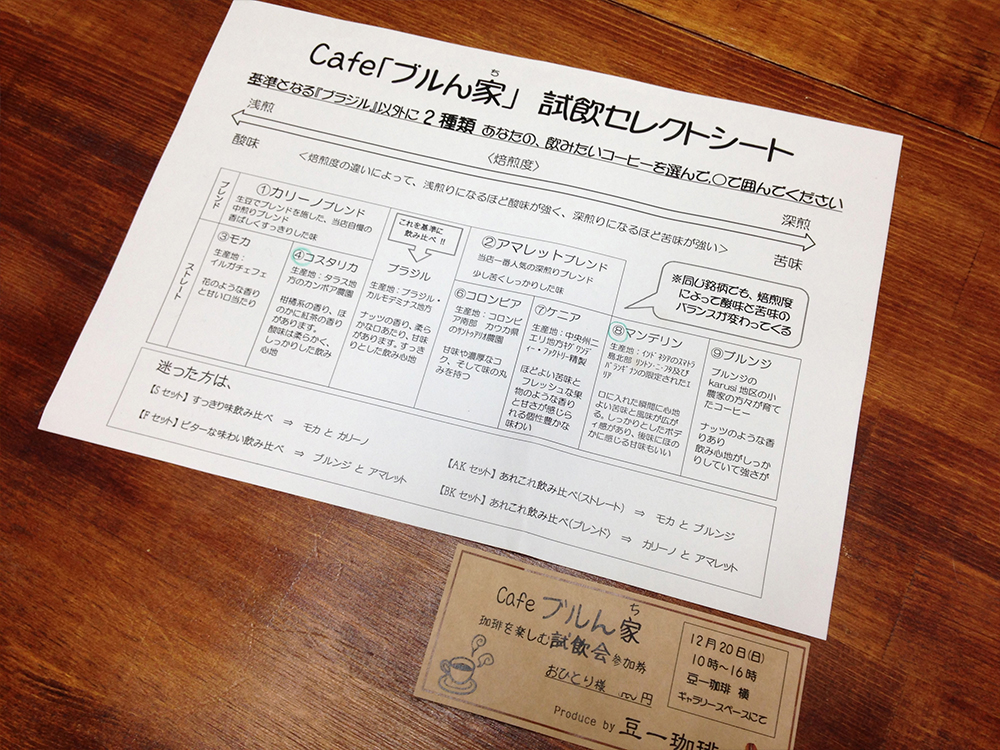 Cafe「ブルん家」 試飲セレクトシート
ち
基準となる『ブラジル』以外に 2 種類 あなたの、飲みたいコーヒーを選んで、○で囲んでください
浅煎
〈焙煎度〉
深煎
酸味
＜焙煎度の違いによって、浅煎りになるほど酸味が強く、深煎りになるほど苦味が強い＞
苦味
ブレンド
①カリーノブレンド
生豆でブレンドを施した、当店自慢の
中煎りブレンド
香ばしくすっきりした味
これを基準に
飲み比べ !!
②アマレットブレンド
当店一番人気の深煎りブレンド
少し苦くしっかりした味
※同じ銘柄でも、焙煎度
によって酸味と苦味の
バランスが変わってくる
ストレート
③モカ
生産地：
イルガチェフェ
花のような香り
と甘い口当たり
④コスタリカ
生産地：タラス地
方のカンボア農園
柑橘系の香り、ほ
のかに紅茶の香り
があります。
酸味は柔らかく、
しっかりした飲み
心地
ブラジル
生産地：ブラジル・
カルモデミナス地方
ナッツの香り、柔ら
かな口あたり、甘味
があります。すっき
りとした飲み心地
⑥コロンビア
生産地：コロンビ
ア南部 カウカ県
のサントゥアリオ農園
甘味や濃厚なコ
ク、そして味の丸
みを持つ
⑦ケニア
生産地：中央州ニ
エリ地方ギタクンディ
ー・ファクトリー精製
ほどよい苦味と
フレッシュな果
物のような香り
と甘さが感じら
れる個性豊かな
味わい
⑧マンデリン
生産地：インドネシアのスマトラ
島北部 リントン・ニ・フタ及び
パランギナンの限定されたエ
リア
口に入れた瞬間に心地
よい苦味と風味が広が
る。しっかりとしたボデ
ィ感があり、後味にほの
かに感じる甘味もいい
⑨ブルンジ
ブルンジの
karusi 地区の小
農家の方々が育て
たコーヒー
ナッツのような香
りあり
飲み心地がしっか
りしていて強さが
迷った方は、
【Sセット】すっきり味飲み比べ ⇒ モカ と カリーノ
【Fセット】ビターな味わい飲み比べ ⇒ ブルンジ と アマレット
【AKセット】あれこれ飲み比べ(ストレート) ⇒ モカ と ブルンジ
【BKセット】あれこれ飲み比べ(ブレンド) ⇒ カリーノ と アマレット
Cafe ブルん家
ち
珈琲を楽しむ試飲会参加券
おひとり様 円
Produce by 豆一珈琲
12月20日(日)
10時～16時
豆一珈琲 横
ギャラリースペースにて